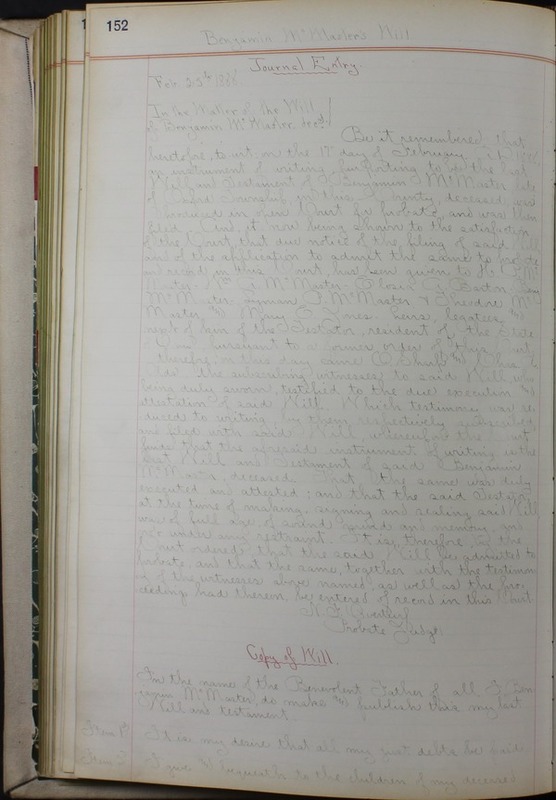 152
Benjamin McMaster's Will
Journal Entry.
Feb. 25th 1888
In the Matter of the Will
of Benjamin McMaster, decd.
Be it remembered, that
heretofore, to wit: on the 17 day of February
an instrument of writing, purporting to be the last
Will and Testament of Benjamin McMaster late
of Township in this County, deceased, was
produced in open Court for probate and was then
filed. And it now being shown to the satisfaction
of the Court, that due notice of the filing of said Will
and of the application to admit the same to probate
and record in this Court, has been given to
McMaster
McMaster, Lyman McMaster & Theodore Mc
Master, and Mary Heirs, legatees and
next of kin of the Testator, resident of the State
pursuant to a former order of this Court
therefore, on this day came and
the subscribing witnesses to said Will, who
being duly sworn, testified to the due execution and
attestation of said Will. Which testimony was re-
duced to writing, by them respectively subscribed
and filed with said Will, whereupon the Court
finds that the aforesaid instrument of writing is the
last Will and Testament of said Benjamin
McMaster, deceased, that the same was duly
executed and attested; and that the said Testator,
at the time of making, signing and sealing said Will
was of full age, of sound mind and memory, and
not under any restraint. It is, therefore, by the
Court ordered, that the said Will be admitted to
probate, and that the same, together with the testimony
of the witnesses above named, as well as the pro-
ceedings had therein, be entered of record in this Court
Probate Judge
Copy of Will.
In the name of the Benevolent Father of all, I, Ben-
jamin McMaster, do make and publish this my last
Will and testament
Item 1st It is my desire that all my just debts be paid
Item 2 I give and bequeath to the children of my deceased